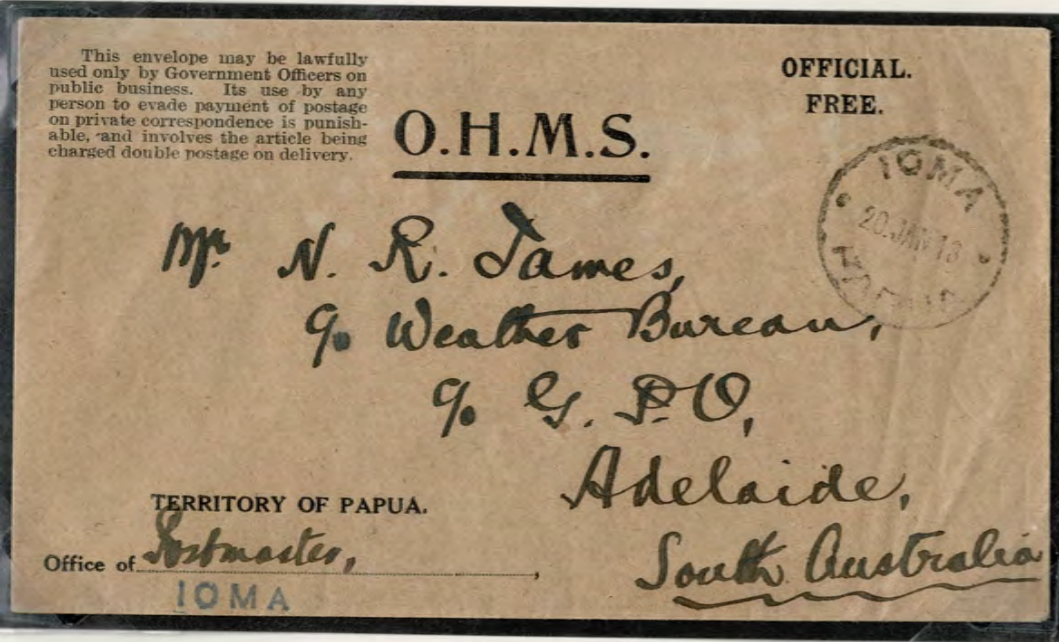 This envelope may be lawfully
used only by Government Officers on
public business. Its use by any
person to evade payment of postage
on private correspondence is punish-
able, and involves the article being
charged double postage on delivery.
OFFICIAL.
FREE.
O.H.M.S.
IOMA
20.JAN 13
PAPUA
Mr. N. R. James,
c/o Weather Bureau,
c/o G. P. O,
Adelaide,
South Australia
TERRITORY OF PAPUA.
Office of Postmaster,
IOMA